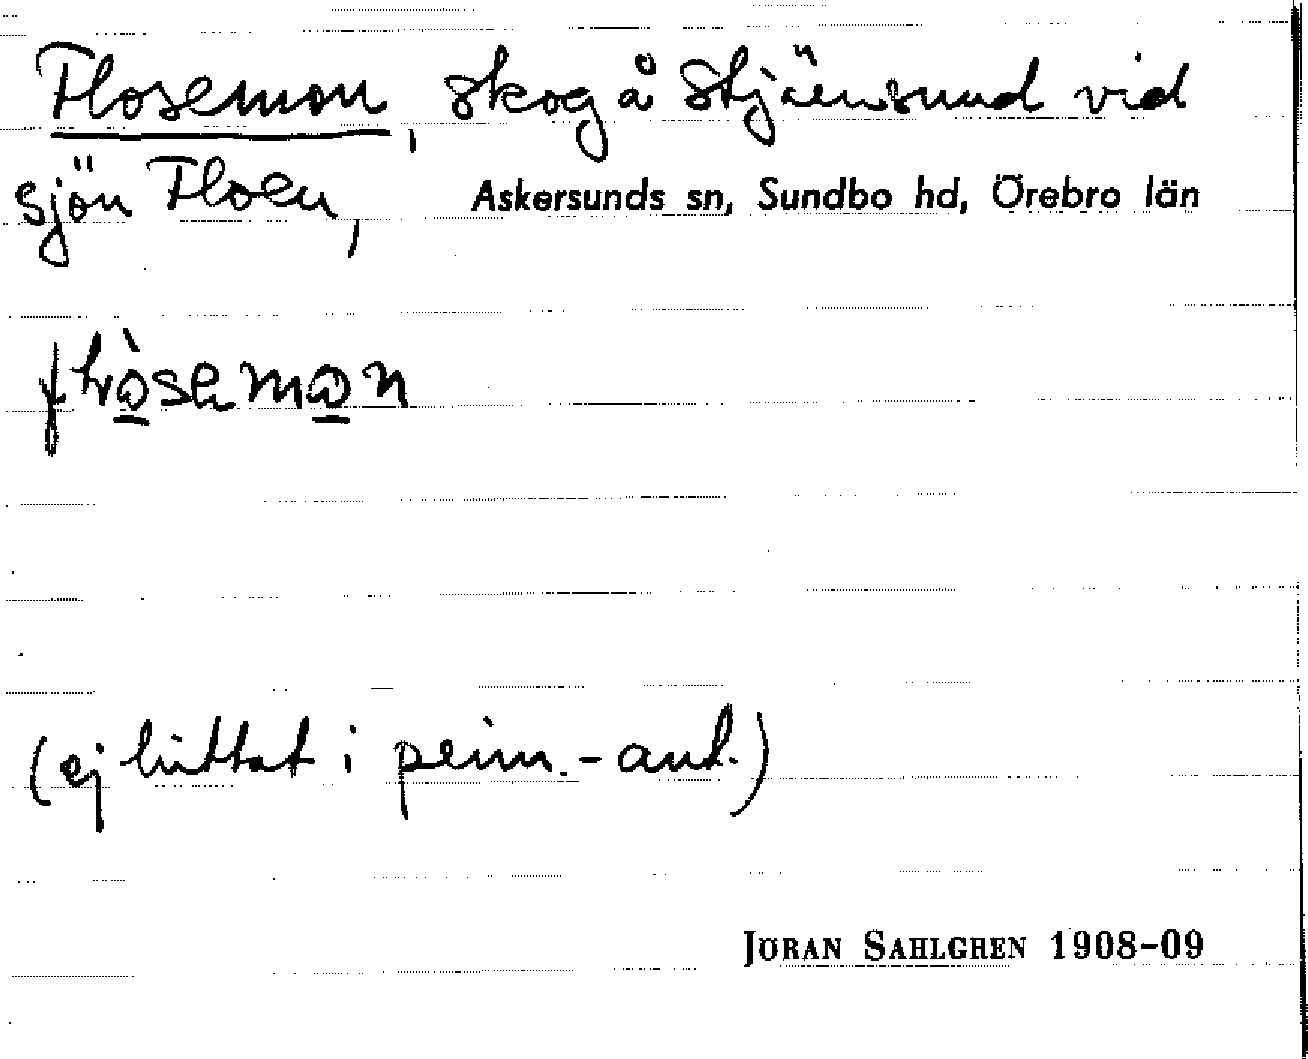 Flosemon, skog å Stjärnsund vid
sjön Floen, Askersunds sn, Sundbo hd, Örebro län
(ej hittat i prim.-ant.)
JÖRAN SAHLGREN 1908-09